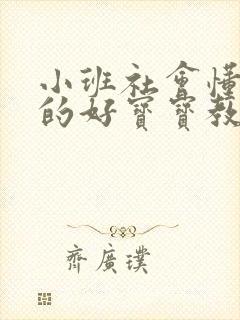 小班社會懂
的好寶寶教
齊廣璞